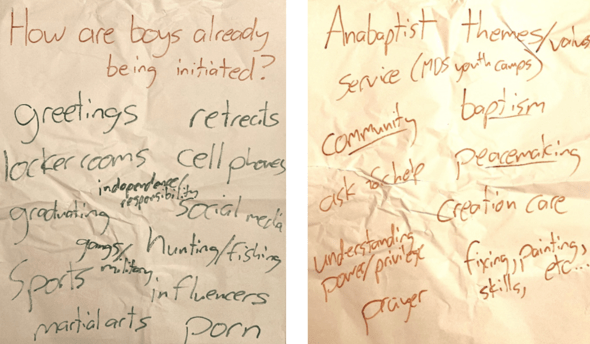 How are boys already
being initiated?
greetings
retreats
locker rooms
cell phones
independence/
responsibility
graduating
social media
gangs/
military
hunting/fishing
sports
influencers
martial arts
porn
Anabaptist themes/values
service (MDS youth camps)
baptism
community
peacemaking
ask 4 help
Creation care
understanding
power/privilege
fixing, painting,
skills, etc...
prayer